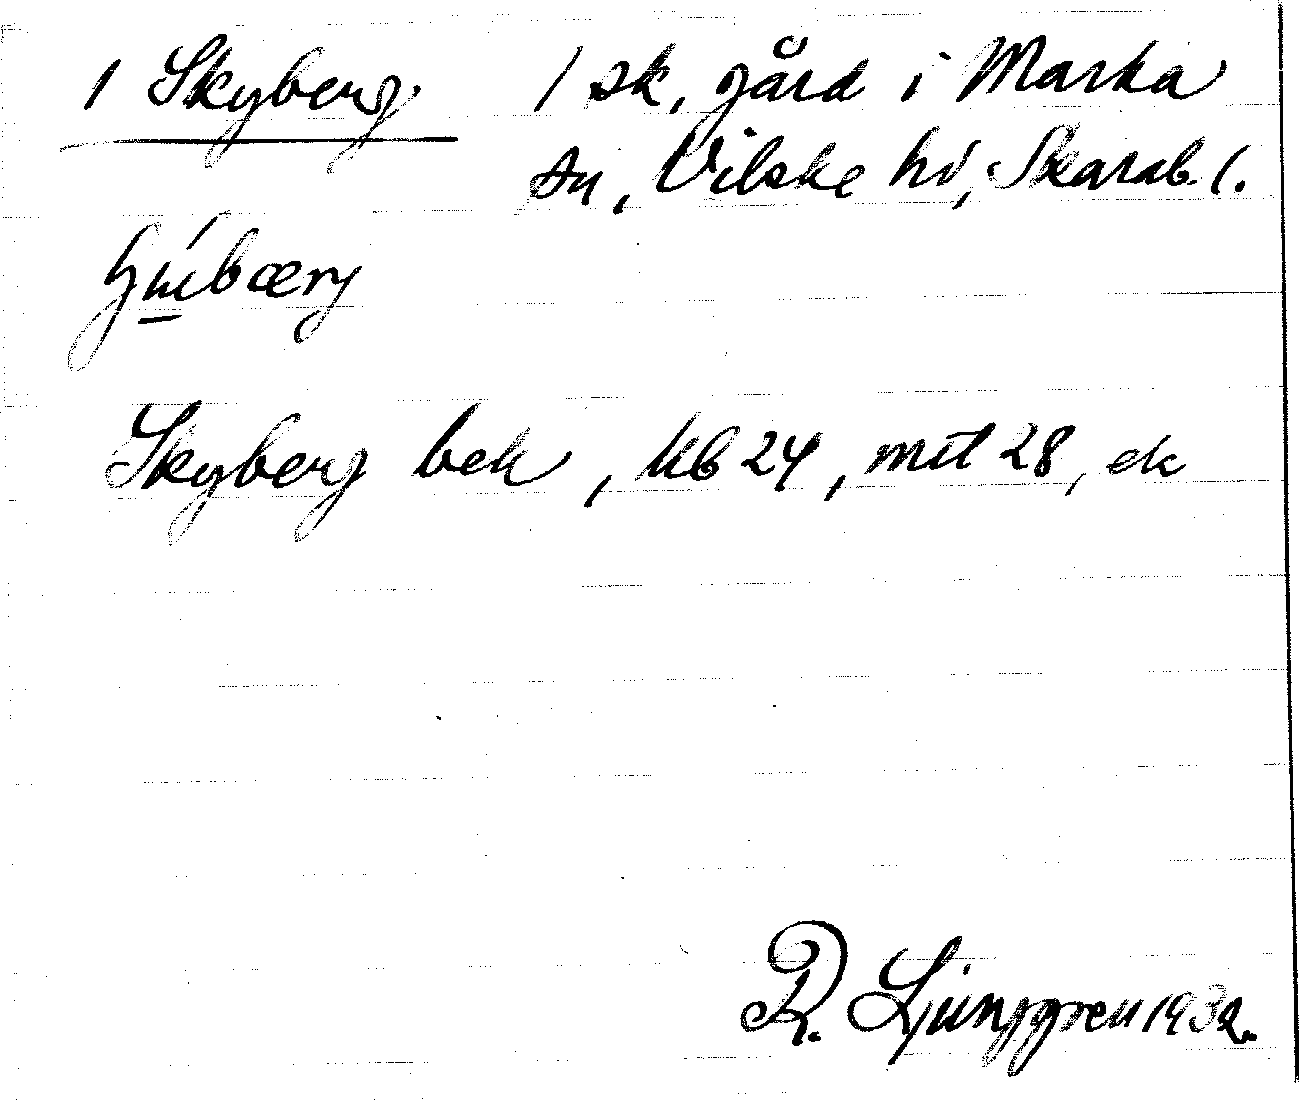 1 Skyberg 1 sk, gård i Marka
sn, Vilske hd, Skarab. l.
Skyberg bek, kb 24, mtl 28, ek
R. Ljunggren 1932.